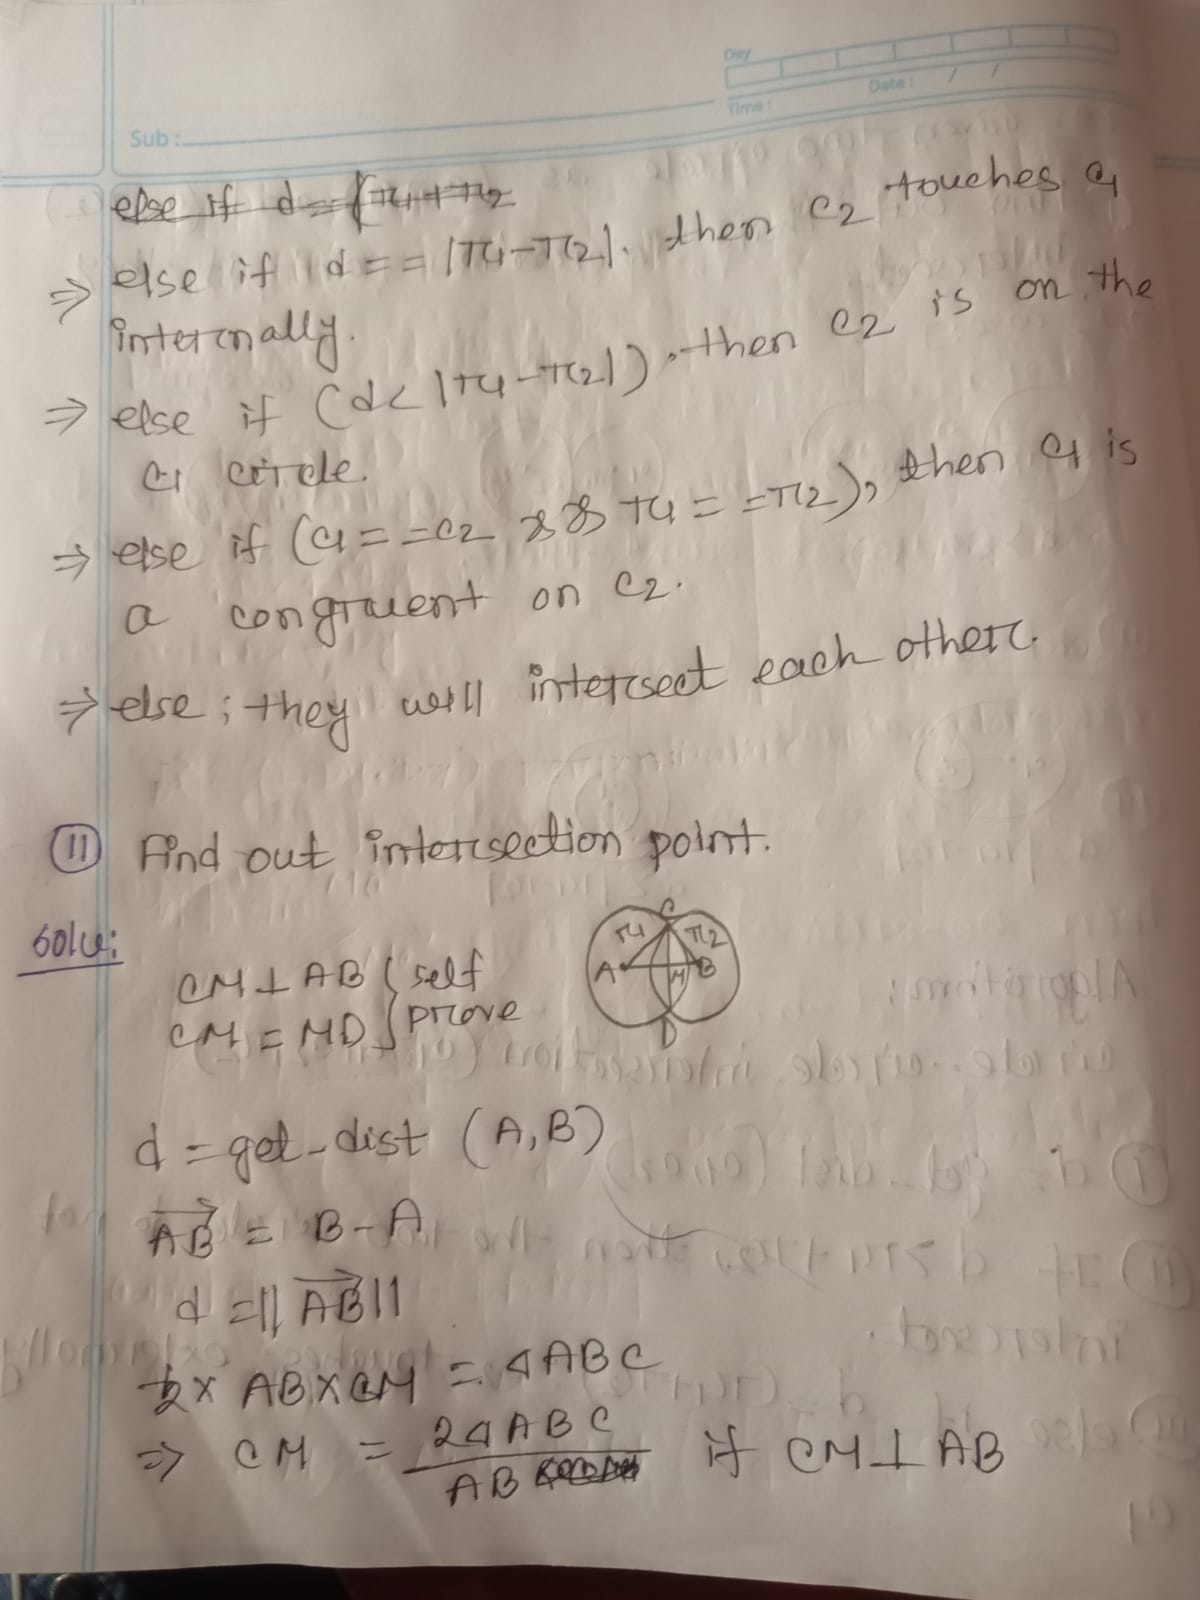 Day
Date: / /
Time:
Sub:
else if d = (r1+r2
⇒ else if d == |r1-r2|. then c2 touches c1
internally.
⇒ else if (d< |r1-r2|), then c2 is on the
c1 circle.
⇒ else if (c1==c2 && r1==r2), then c1 is
a congruent on c2.
⇒ else; they will intersect each other.
(11) Find out intersection point.
Solu:
C
r1 r2
A M B
D
CM ⊥ AB } self
CM = MD } prove
d = get-dist (A,B)
AB = B-A
d = ||AB||
½ × AB × CM = △ABC
⇒ CM = 2△ABC / AB if CM ⊥ AB